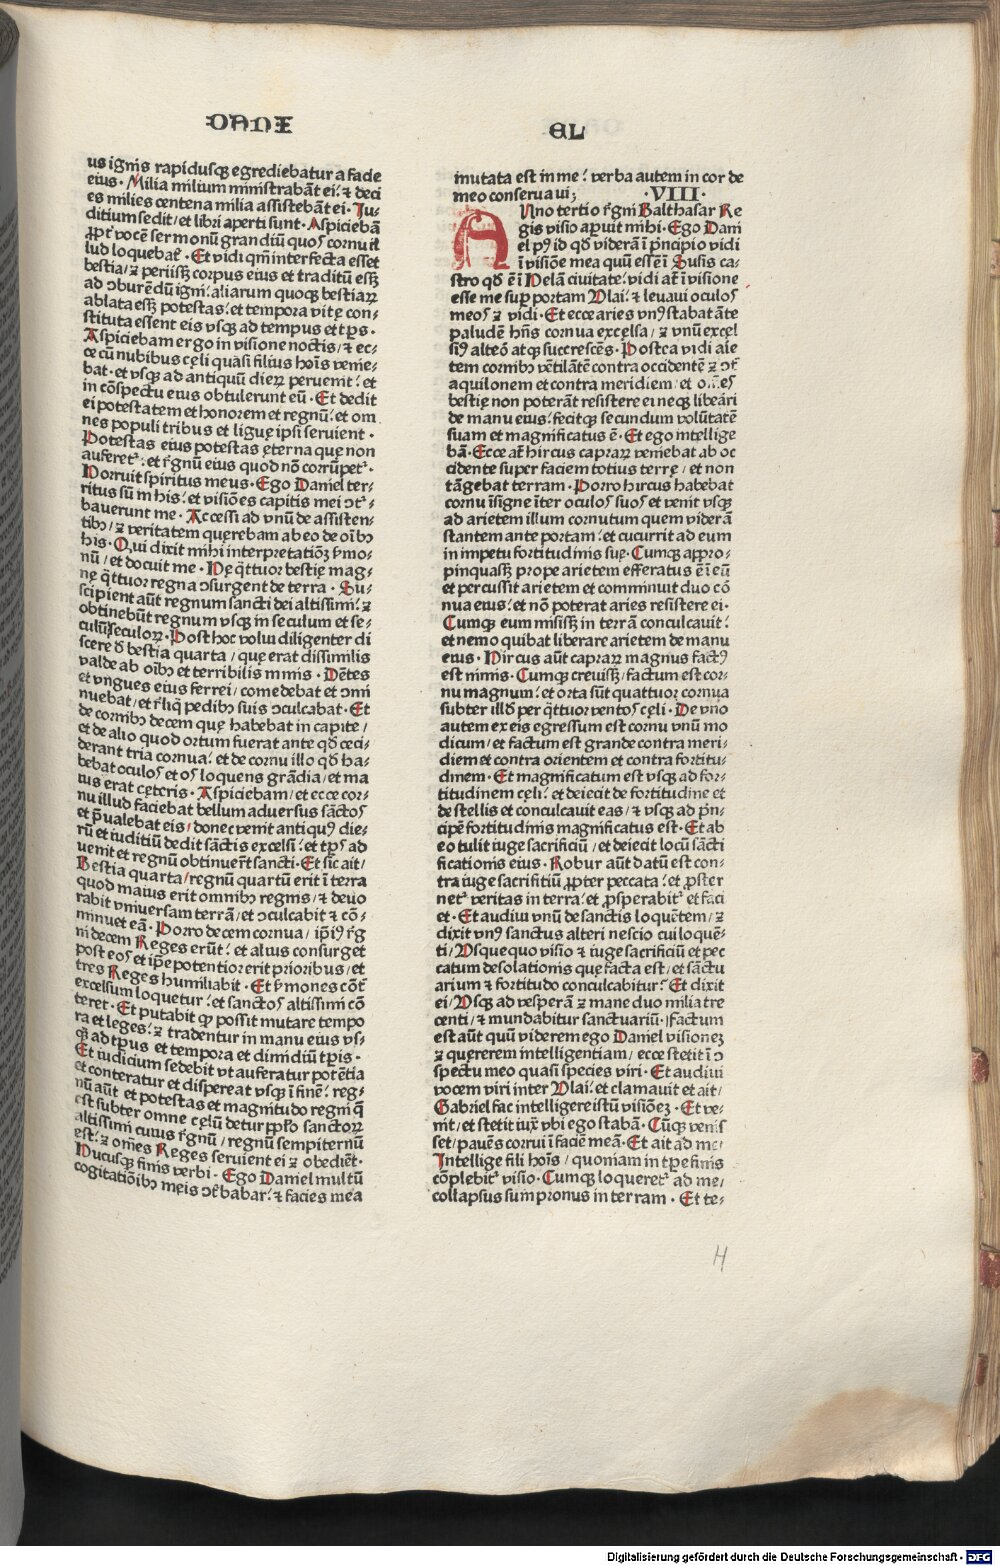 DANI
EL
us ignis rapidusqꝫ egrediebatur a facie
eius · Milia milium ministrabāt ei : ⁊ deci
es milies centena milia assistebāt ei · Iu⸗
ditium sedit / et libri aperti sunt · Aspiciebā
ꝓpt̄ vocē sermonū grandiū quos cornu il
lud loquebat᷑ · Et vidi qm̄ interfecta esset
bestia / ⁊ periissꝫ corpus eius et traditū essꝫ
ad ↄburēdū igni : aliarum quoqꝫ bestiaꝝ
ablata essꝫ potestas : et tempora vitę con⸗
stituta essent eis vsqꝫ ad tempus et tp̄s ·
Aspiciebam ergo in visione noctis / ⁊ ec⸗
ce cū nubibus cęli quasi filius hoīs venie⸗
bat · et vsqꝫ ad antiquū dieꝝ peruenit : et
in cōspectu eius obtulerunt eū · Et dedit
ei potestatem et honorem et regnū : et om
nes populi tribus et liguę ipsi seruient ·
Potestas eius potestas ęterna que non
auferet᷑ : et r̄gnū eius quod nō corrūpet᷑ ·
Horruit spiritus meus · Ego Daniel ter⸗
ritus sū in his : et visiōes capitis mei ↄt᷑⸗
bauerunt me · Accessi ad vnū de assisten⸗
tibꝫ / ⁊ veritatem querebam ab eo de oībꝫ
his · Qui dixit mihi interpretatiōꝫ ẜmo⸗
nū / et docuit me · Hę q̄ttuor bestię mag⸗
nę q̄ttuor regna ↄsurgent de terra · Su⸗
scipient aūt regnum sancti dei altissimi : ⁊
obtinebūt regnum vsqꝫ in seculum et se⸗
culū seculoꝝ · Post hoc volui diligenter di
scere ð bestia quarta / quę erat dissimilis
valde ab oībꝫ et terribilis nimis · Dētes
et vngues eius ferrei / comedebat et ↄmi
nuebat / et r̄liq̄ pedibꝫ suis ↄculcabat · Et
de cornibꝫ decem quę habebat in capite /
et de alio quod ortum fuerat ante qð ceci⸗
derant tria cornua : et de cornu illo qð ha⸗
bebat oculos et os loquens grādia / et ma
ius erat cęteris · Aspiciebam / et ecce cor⸗
nu illud faciebat bellum aduersus sāctos
et p̄ualebat eis / donec venit antiquꝰ die⸗
rū et iuditiū dedit sāctis excelsi : et tp̄s ad
uenit et regnū obtinuer̄t sancti · Et sic ait /
Bestia quarta / regnū quartū erit ī terra
quod maius erit omnibꝫ regnis / ⁊ deuo
rabit vniuersam terrā / et ↄculcabit ⁊ cō⸗
minuet eā · Porro decem cornua / ip̄iꝰ r̄g
ni decem Reges erūt : et alius consurget
post eos et ip̄e potentior erit prioribus / et
tres Reges humiliabit · Et ẜmones cōt᷑
excelsum loquetur : et sanctos altissimi cō
teret · Et putabit ꝙ possit mutare tempo
ra et leges : ⁊ tradentur in manu eius vs⸗
qꝫ ad tp̄us et tempora et dimidiū tp̄is ·
Et iudicium sedebit vt auferatur potētia
et conteratur et dispereat vsqꝫ ī finē : reg⸗
nū aūt et potestas et magnitudo regni q̄
est subter omne cęlū detur pp̄ło sanctoꝝ
altissimi cuius r̄gnū / regnū sempiternū
est : ⁊ om̄es Reges seruient ei ⁊ obediēt ·
Hucusqꝫ finis verbi · Ego Daniel multū
cogitatiōibꝫ meis ↄt᷑babar : ⁊ facies mea
inmutata est in me : verba autem in cor de
meo conseruaui ; · VIII ·
ANno tertio r̄gni Balthasar Re
gis visio aꝑuit mihi · Ego Dani
el pꝰ id qð viderā ī p̄ncipio vidi
ī visiōe mea quū essē ī Susis ca⸗
stro qð ē ī Helā ciuitate : vidi at̄ ī visione
esse me suꝑ portam Vlai : ⁊ leuaui oculos
meos ⁊ vidi · Et ecce aries vnꝰ stabat āte
paludē hn̄s cornua excelsa / ⁊ vnū excel
siꝰ alteō atqꝫ succrescēs · Postea vidi arie
tem cornibꝫ vētilātē contra occidentē ⁊ ↄt᷑
aquilonem et contra meridiem / et om̄es
bestię non poterāt resistere ei neqꝫ libeāri
de manu eius : fecitqꝫ secundum volūtatē
suam et magnificatus ē · Et ego intellige
bā · Ecce at̄ hircus capraꝝ veniebat ab oc
cidente super faciem totius terrę / et non
tāgebat terram · Porro hircus habebat
cornu īsigne īter oculos suos et venit vsqꝫ
ad arietem illum cornutum quem viderā
stantem ante portam : et cucurrit ad eum
in impetu fortitudinis suę · Cumqꝫ appro⸗
pinquassꝫ prope arietem efferatus ē ī eū
et percussit arietem et comminuit duo cō
nua eius : et nō poterat aries resistere ei ·
Cumqꝫ eum misissꝫ in terrā conculcauit :
et nemo quibat liberare arietem de manu
eius · Hircus aūt capraꝝ magnus factꝰ
est nimis · Cumqꝫ creuissꝫ / factum est cor⸗
nu magnum : et orta sūt quattuor cornua
subter illð per q̄ttuor ventos cęli · De vno
autem ex eis egressum est cornu vnū mo
dicum / et factum est grande contra meri⸗
diem et contra orientem et contra fortitu⸗
dinem · Et magnificatum est vsqꝫ ad for⸗
titudinem cęli : et deiecit de fortitudine et
de stellis et conculcauit eas / ⁊ vsqꝫ ad p̄n⸗
cipē fortitudinis magnificatus est · Et ab
eo tulit iuge sacrificiū / et deiecit locū sācti
ficationis eius · Robur aūt datū est con⸗
tra iuge sacrifitiū ꝓpter peccata : et ꝓster
net᷑ veritas in terra : et ꝓsperabit᷑ et faci
et · Et audiui vnū de sanctis loquētem / ⁊
dixit vnꝰ sanctus alteri nescio cui loquē⸗
ti / Vsquequo visio ⁊ iuge sacrificiū et pec
catum desolationis quę facta est / et sāctu
arium ⁊ fortitudo conculcabitur : Et dixit
ei / Vsqꝫ ad vesperā ⁊ mane duo milia tre
centi / ⁊ mundabitur sanctuariū · Factum
est aūt quū viderem ego Daniel visioneꝫ
⁊ quererem intelligentiam / ecce stetit ī ↄ
spectu meo quasi species viri · Et audiui
vocem viri inter Vlai : et clamauit et ait /
Gabriel fac intelligere istū visiōeꝫ · Et ve⸗
nit / et stetit iux̄ vbi ego stabā · Cūqꝫ venis
set / pauēs corrui ī faciē meā · Et ait ad me /
Intellige fili hoīs / quoniam in tp̄e finis
cōplebit᷑ visio · Cumqꝫ loqueret᷑ ad me /
collapsus sum pronus in terram · Et te⸗
H
Digitalisierung gefördert durch die Deutsche Forschungsgemeinschaft - DFG